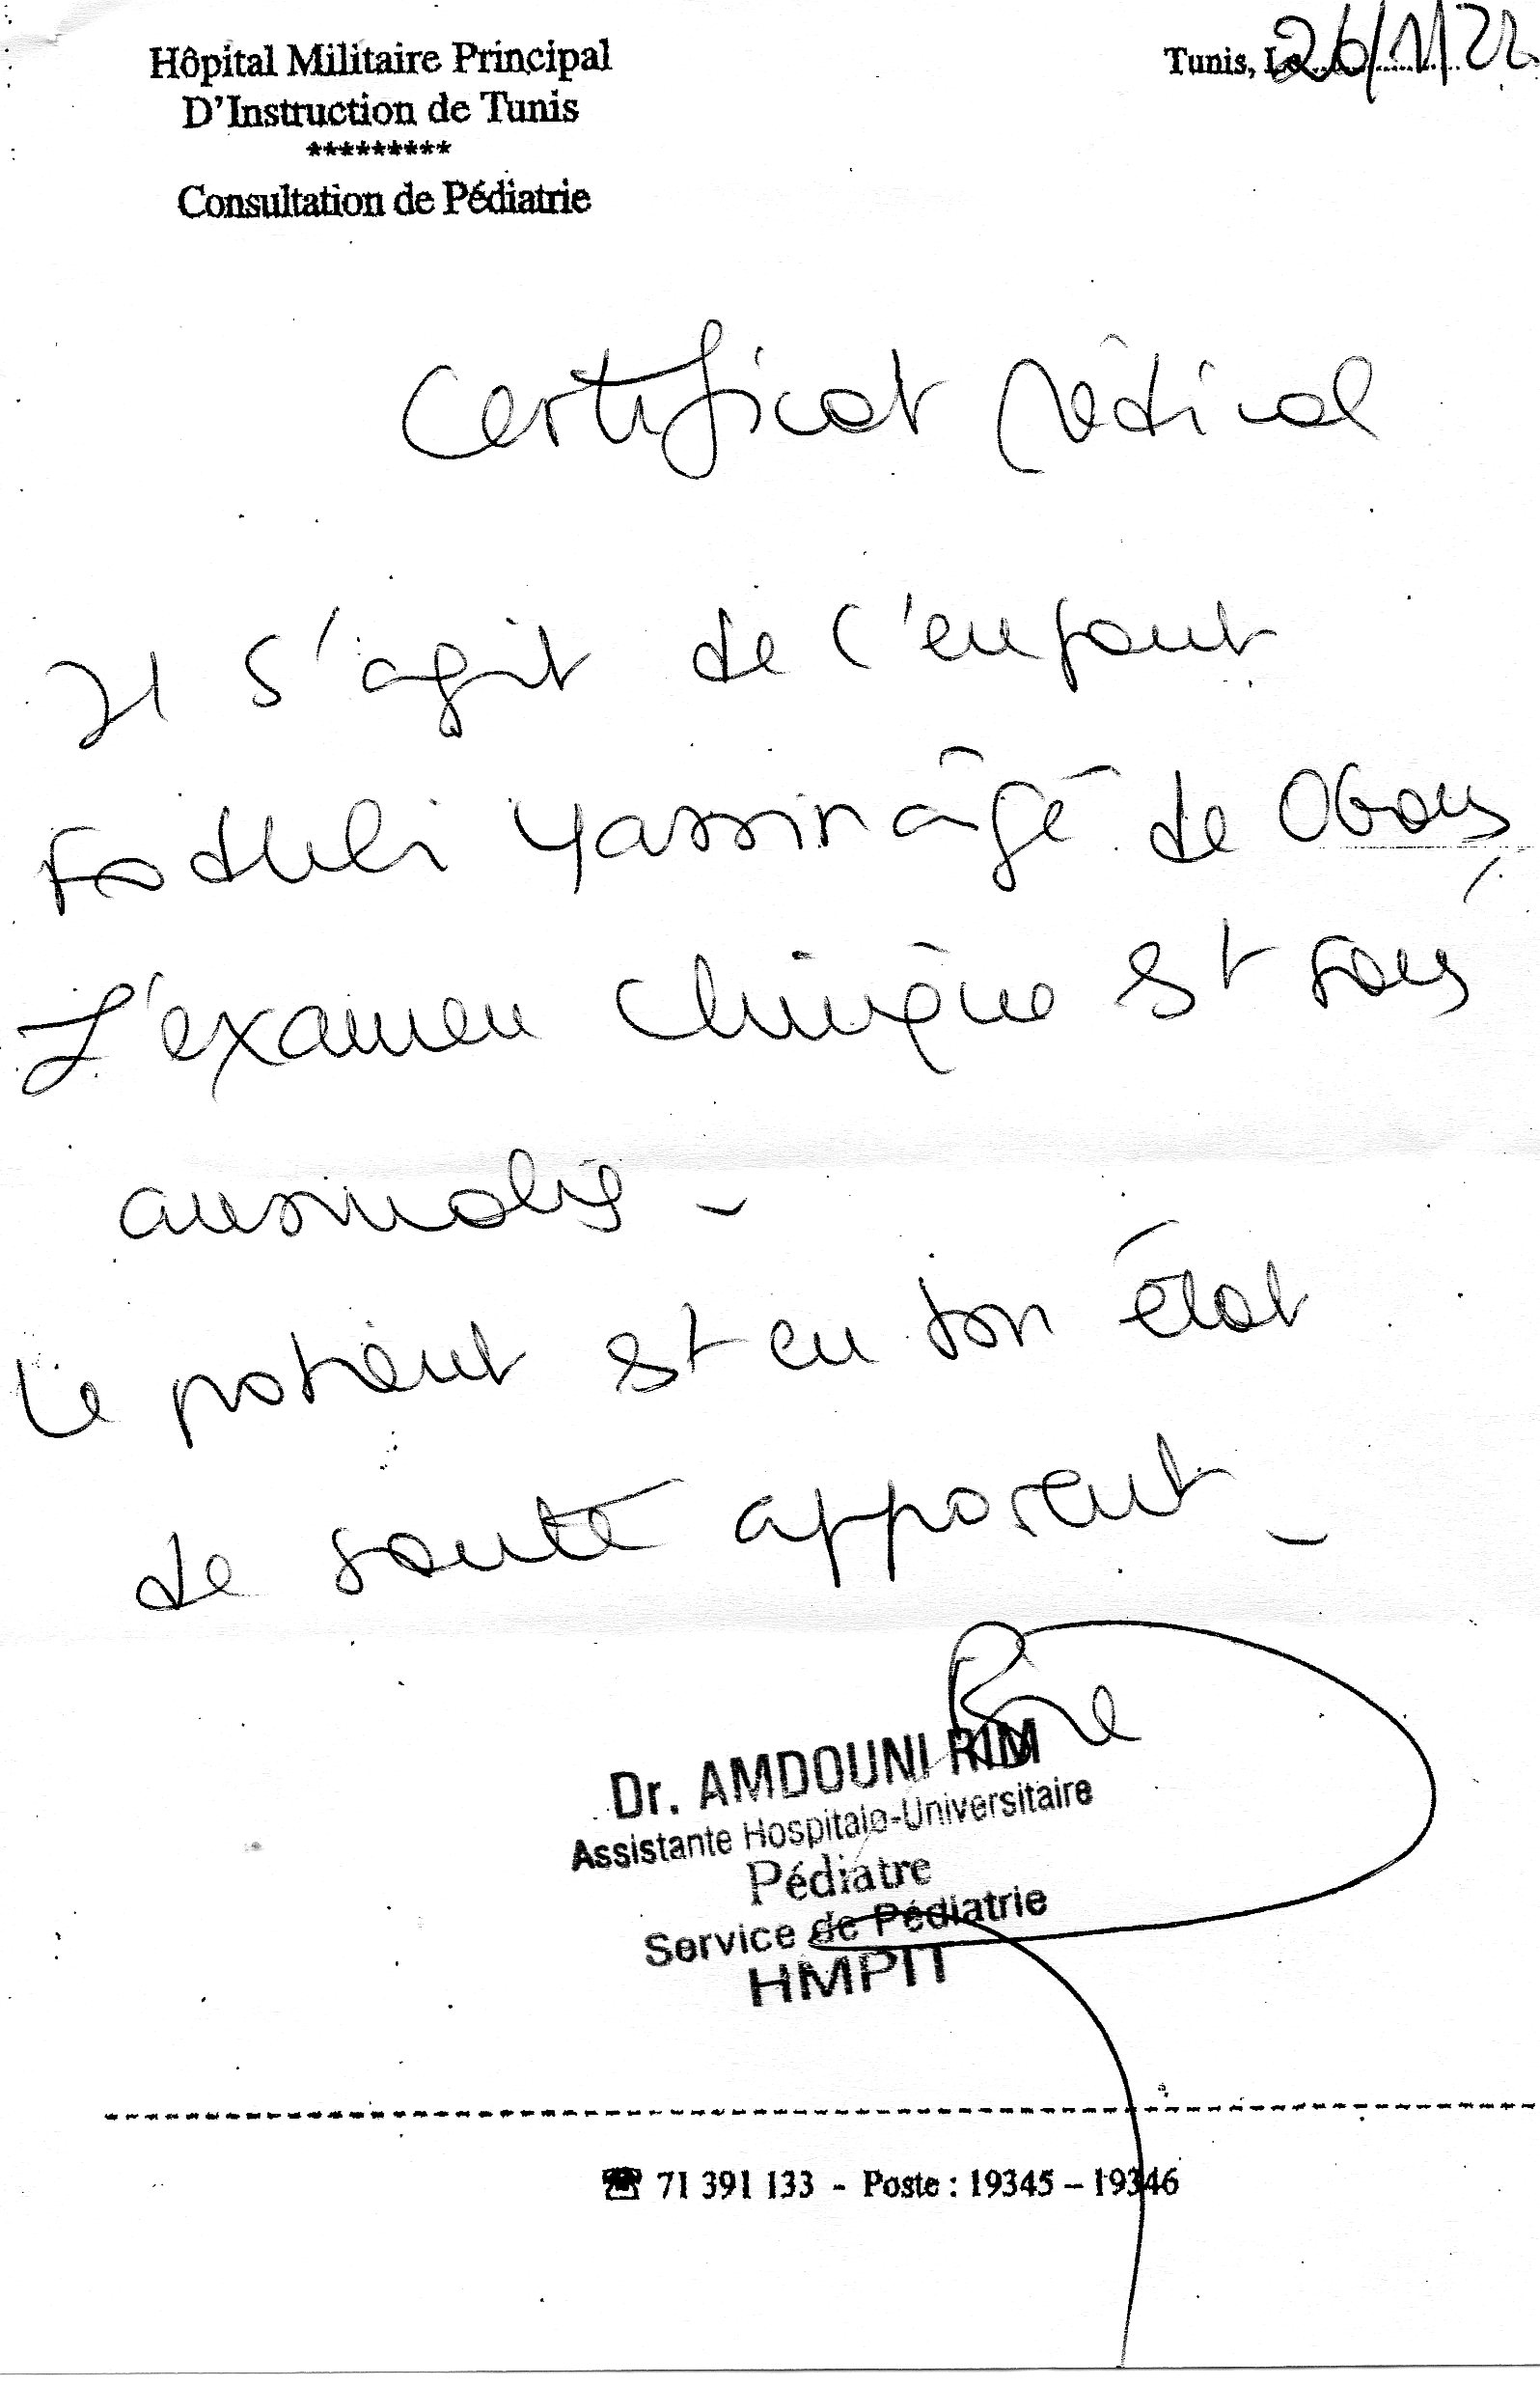 Hôpital Militaire Principal
D'Instruction de Tunis
*********
Consultation de Pédiatrie
Tunis, Le 26/1/22
Certificat Médical
Il s'agit de l'enfant
Yassin âgé de 06 ans,
L'examen clinique est sans
anomalies -
Le patient est en bon état
de santé apparent -
Dr. AMDOUNI RIM
Assistante Hospitalo-Universitaire
Pédiatre
Service de Pédiatrie
HMPIT
☎ 71 391 133 - Poste : 19345 – 19346